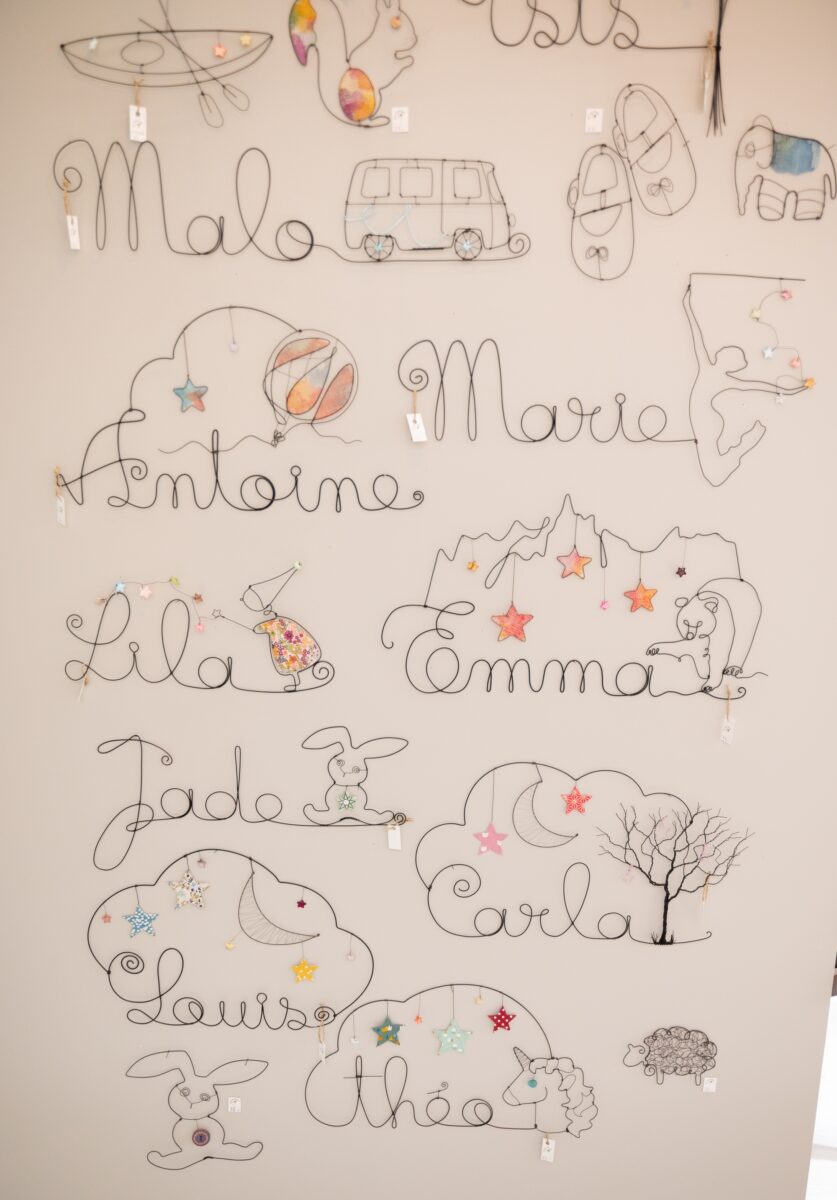 Malo
Marie
Antoine
Lila
Emma
Jade
Carla
Louis
théo